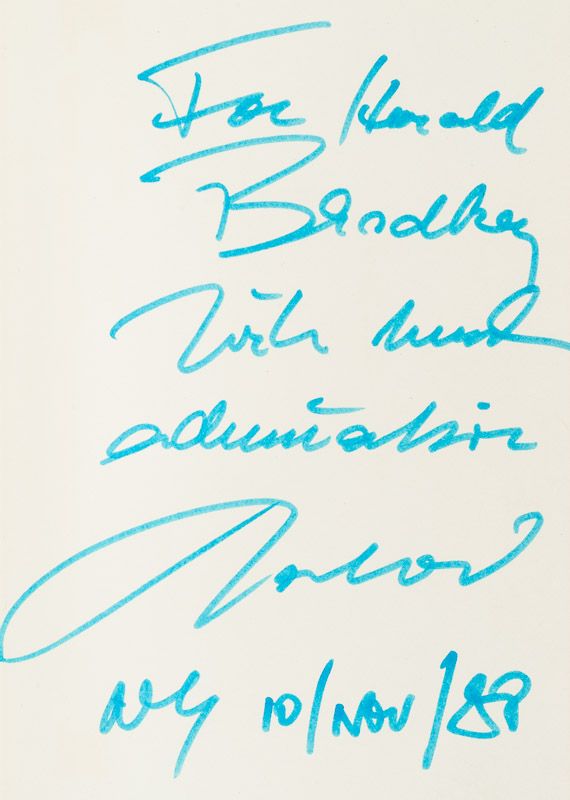 For Harold
Brodkey
With much
admiration
NY 10/NOV/88